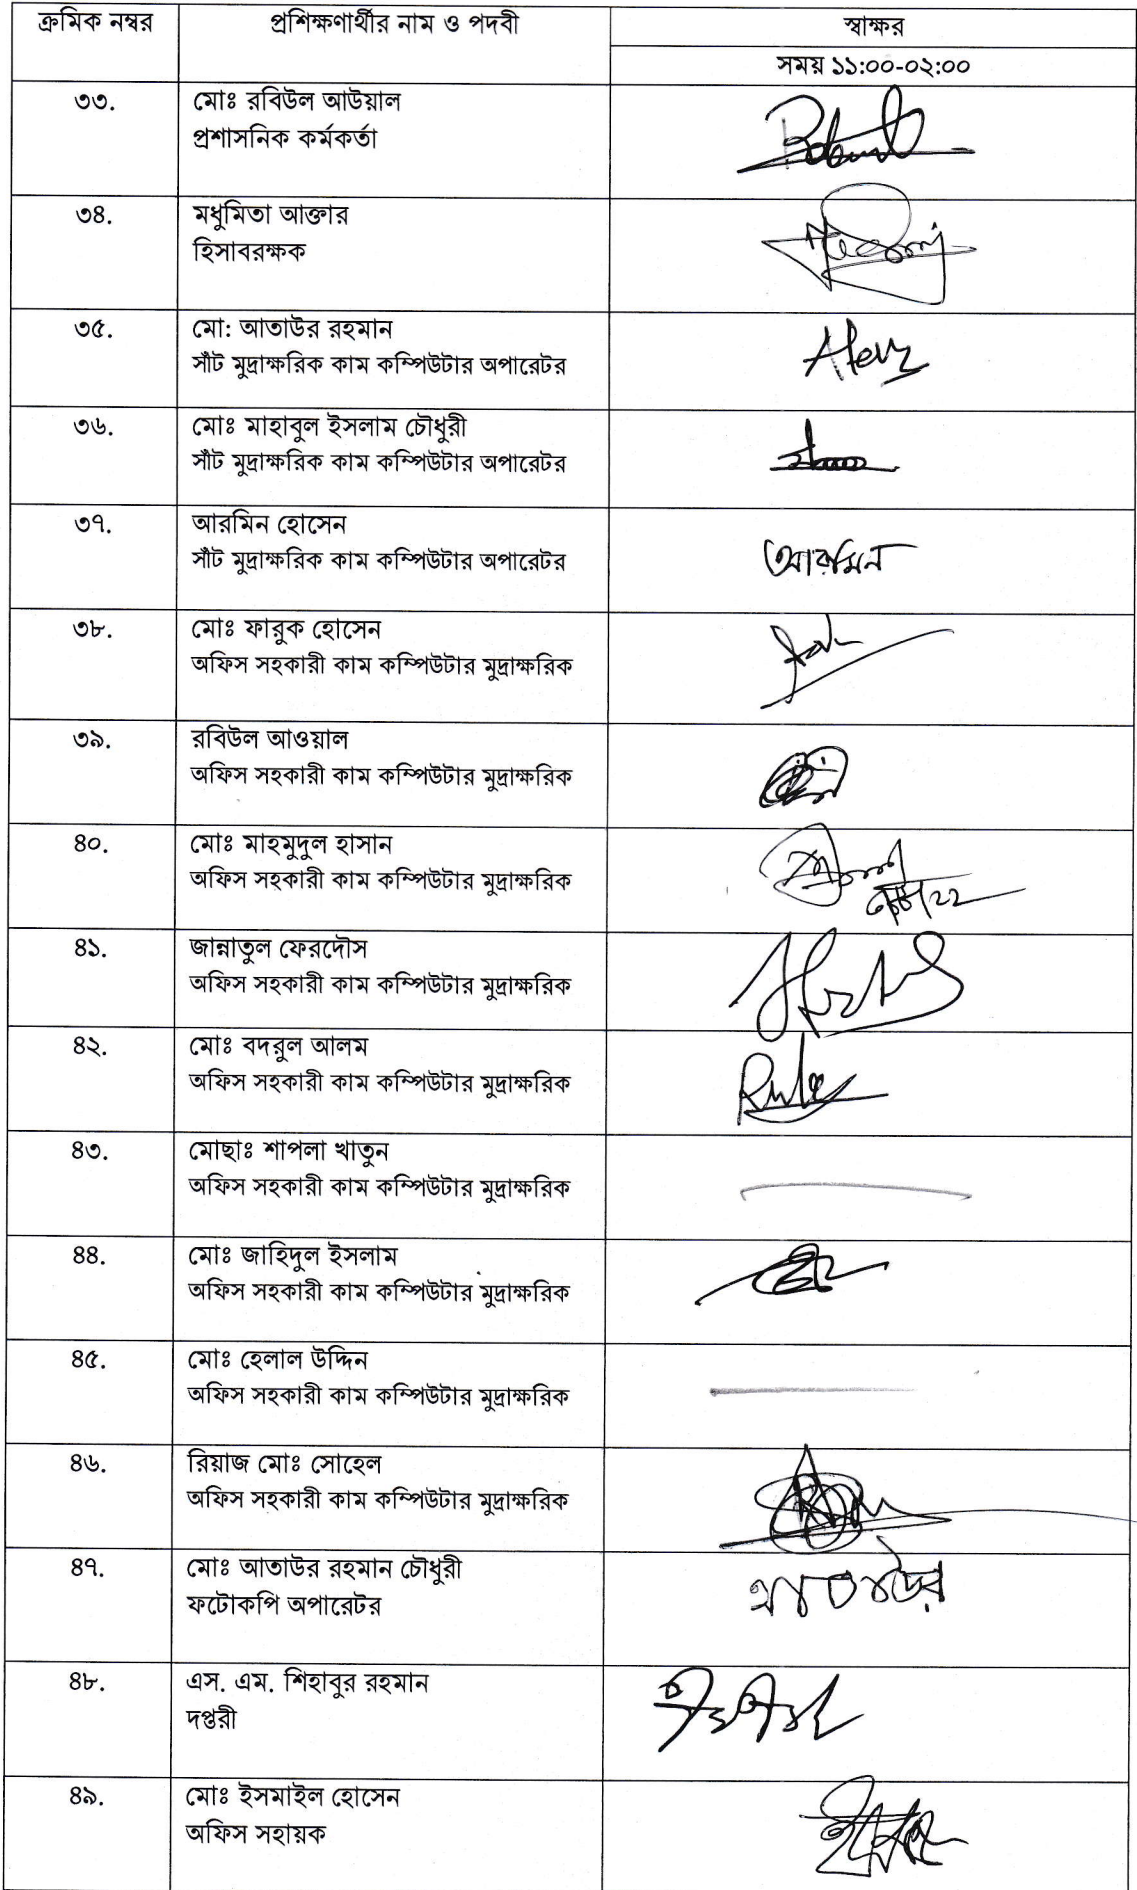 ক্রমিক নম্বর প্রশিক্ষণার্থীর নাম ও পদবী স্বাক্ষর
সময় ১১:০০-০২:০০
৩৩. মোঃ রবিউল আউয়াল
প্রশাসনিক কর্মকর্তা
৩৪. মধুমিতা আক্তার
হিসাবরক্ষক
৩৫. মো: আতাউর রহমান
সাঁট মুদ্রাক্ষরিক কাম কম্পিউটার অপারেটর
৩৬. মোঃ মাহাবুল ইসলাম চৌধুরী
সাঁট মুদ্রাক্ষরিক কাম কম্পিউটার অপারেটর
৩৭. আরমিন হোসেন
সাঁট মুদ্রাক্ষরিক কাম কম্পিউটার অপারেটর
আরমিন
৩৮. মোঃ ফারুক হোসেন
অফিস সহকারী কাম কম্পিউটার মুদ্রাক্ষরিক
৩৯. রবিউল আওয়াল
অফিস সহকারী কাম কম্পিউটার মুদ্রাক্ষরিক
৪০. মোঃ মাহমুদুল হাসান
অফিস সহকারী কাম কম্পিউটার মুদ্রাক্ষরিক
৪১. জান্নাতুল ফেরদৌস
অফিস সহকারী কাম কম্পিউটার মুদ্রাক্ষরিক
৪২. মোঃ বদরুল আলম
অফিস সহকারী কাম কম্পিউটার মুদ্রাক্ষরিক
৪৩. মোছাঃ শাপলা খাতুন
অফিস সহকারী কাম কম্পিউটার মুদ্রাক্ষরিক
৪৪. মোঃ জাহিদুল ইসলাম
অফিস সহকারী কাম কম্পিউটার মুদ্রাক্ষরিক
৪৫. মোঃ হেলাল উদ্দিন
অফিস সহকারী কাম কম্পিউটার মুদ্রাক্ষরিক
৪৬. রিয়াজ মোঃ সোহেল
অফিস সহকারী কাম কম্পিউটার মুদ্রাক্ষরিক
৪৭. মোঃ আতাউর রহমান চৌধুরী
ফটোকপি অপারেটর
আতাউর
৪৮. এস. এম. শিহাবুর রহমান
দপ্তরী
৪৯. মোঃ ইসমাইল হোসেন
অফিস সহায়ক